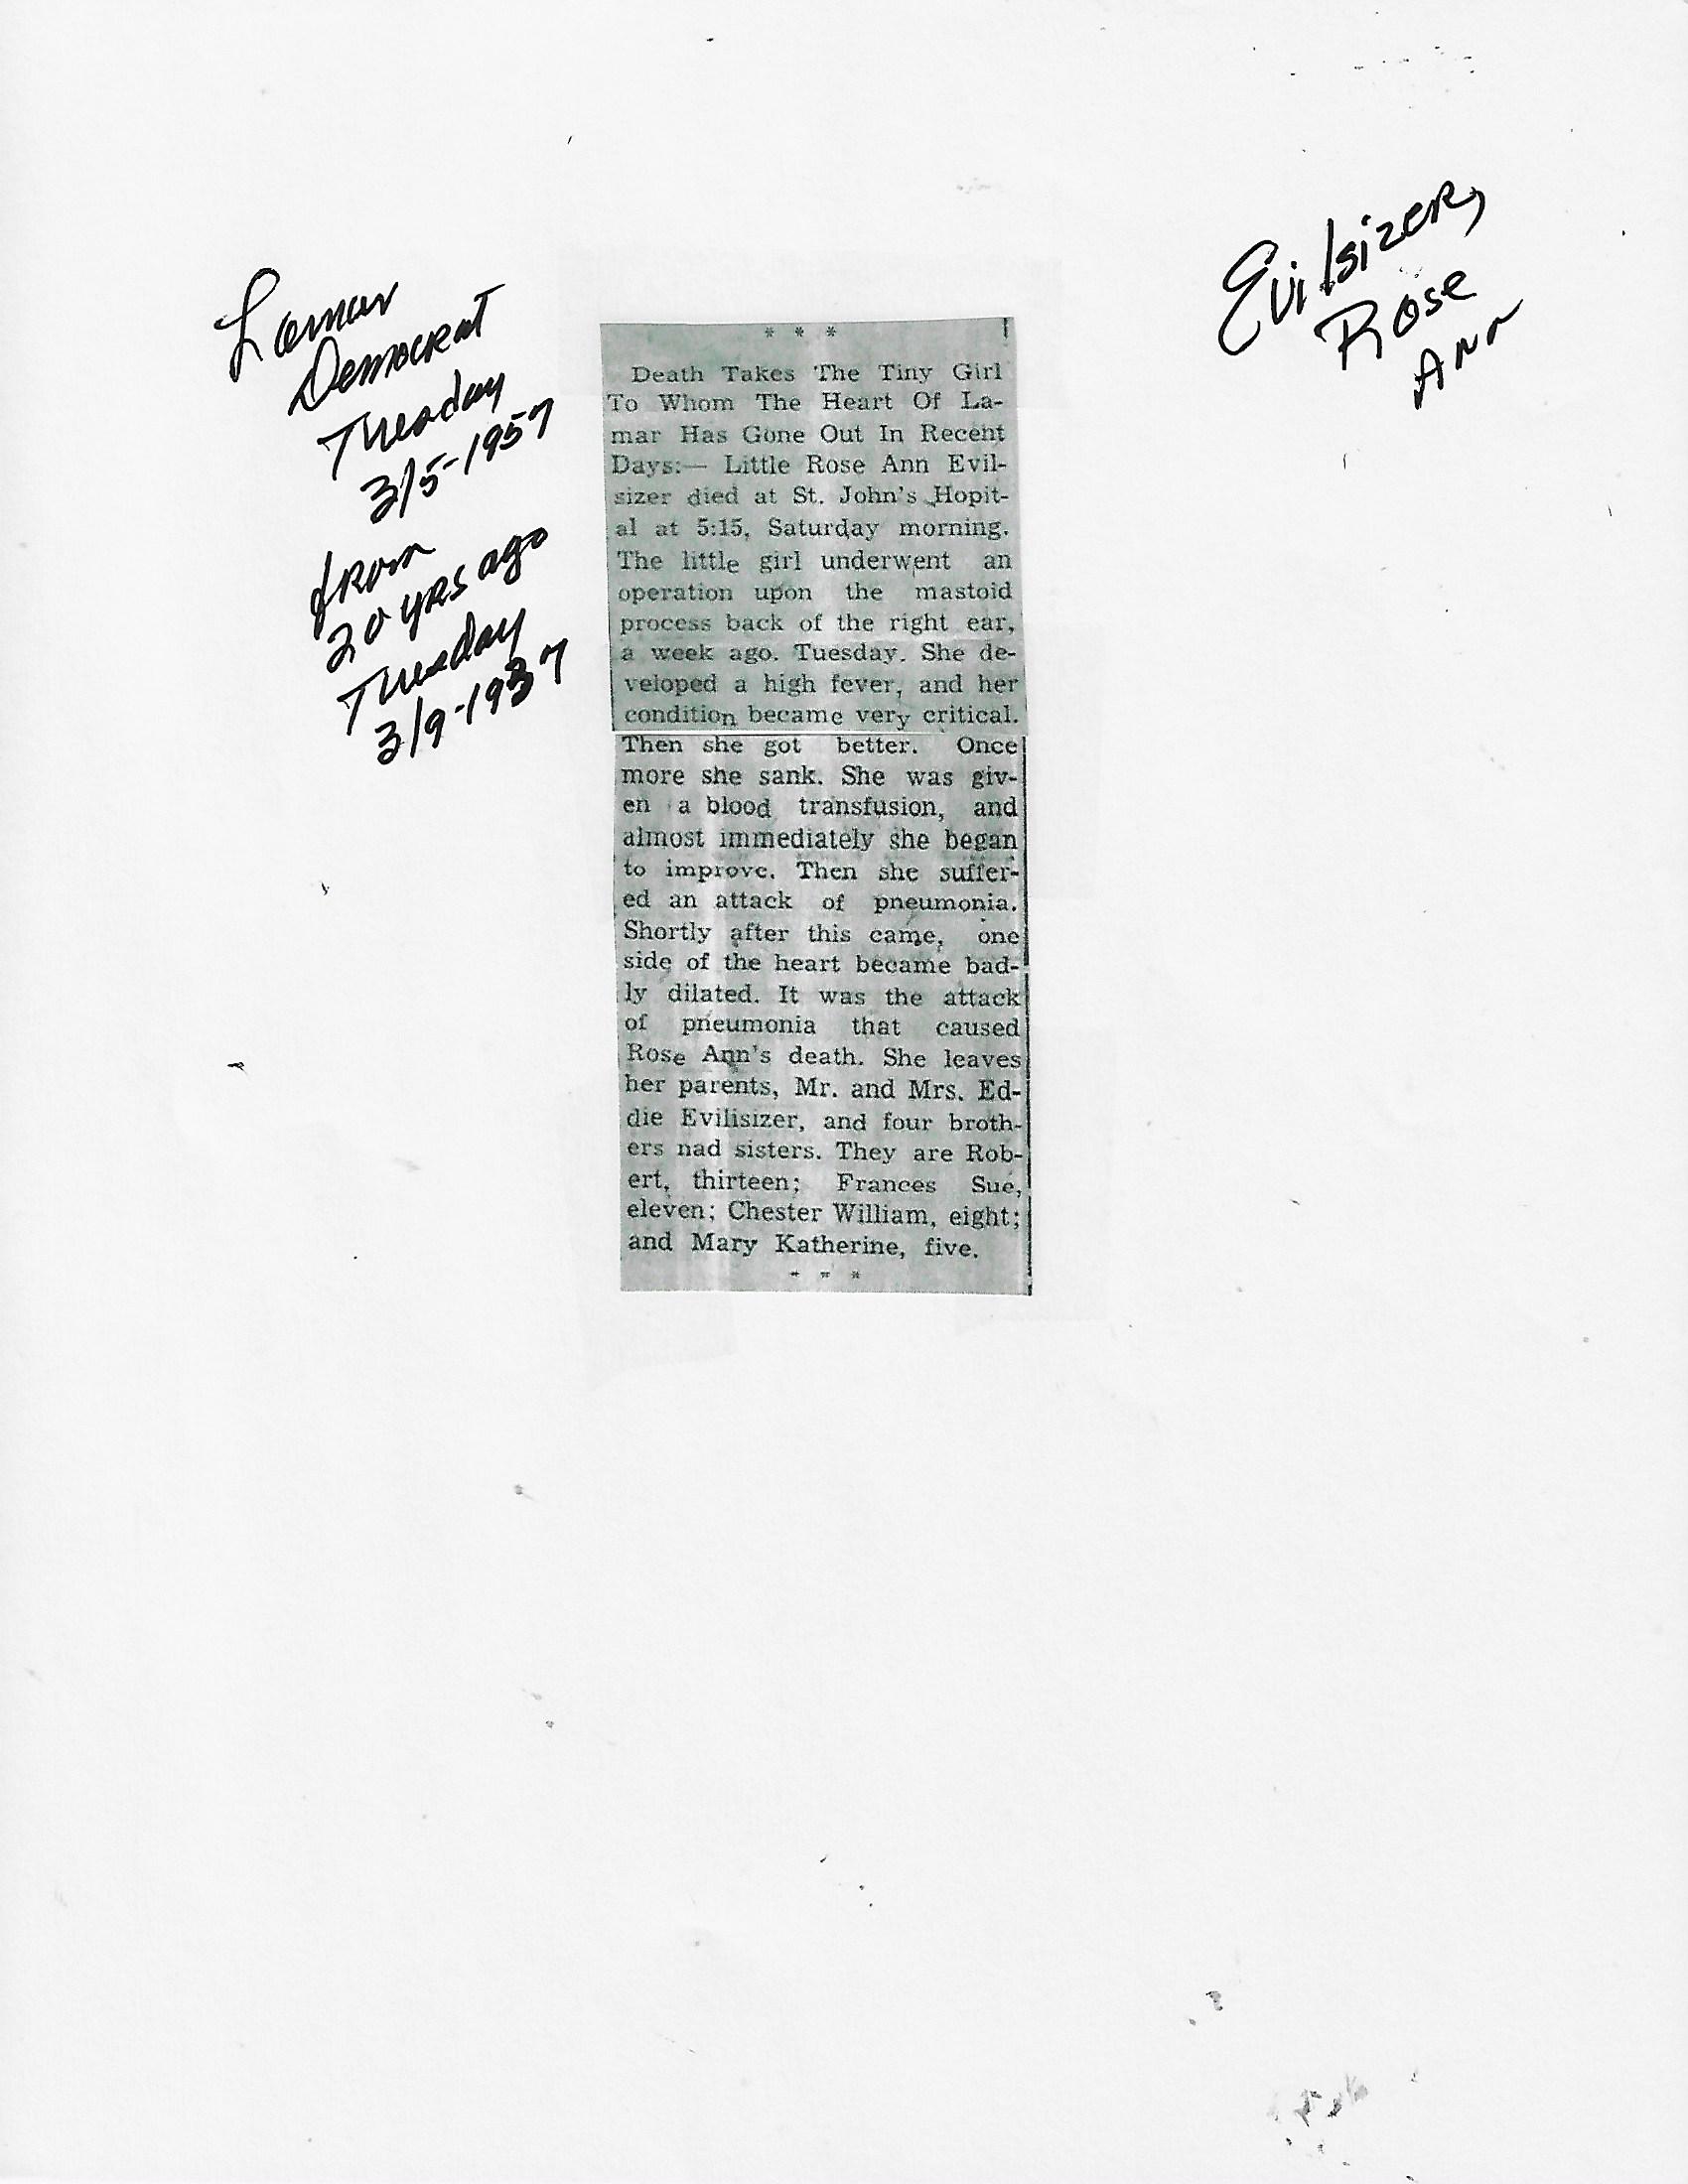 Lamar
Democrat
Tuesday
3/5-1957
from
20 yrs ago
Tuesday
3/9-1937
Evilsizer,
Rose
Ann
* * *
Death Takes The Tiny Girl
To Whom The Heart Of La-
mar Has Gone Out In Recent
Days:— Little Rose Ann Evil-
sizer died at St. John's Hopit-
al at 5:15, Saturday morning.
The little girl underwent an
operation upon the mastoid
process back of the right ear,
a week ago. Tuesday. She de-
veloped a high fever, and her
condition became very critical.
Then she got better. Once
more she sank. She was giv-
en a blood transfusion, and
almost immediately she began
to improve. Then she suffer-
ed an attack of pneumonia.
Shortly after this came, one
side of the heart became bad-
ly dilated. It was the attack
of pneumonia that caused
Rose Ann's death. She leaves
her parents, Mr. and Mrs. Ed-
die Evilisizer, and four broth-
ers nad sisters. They are Rob-
ert, thirteen; Frances Sue,
eleven; Chester William, eight;
and Mary Katherine, five.
* * *